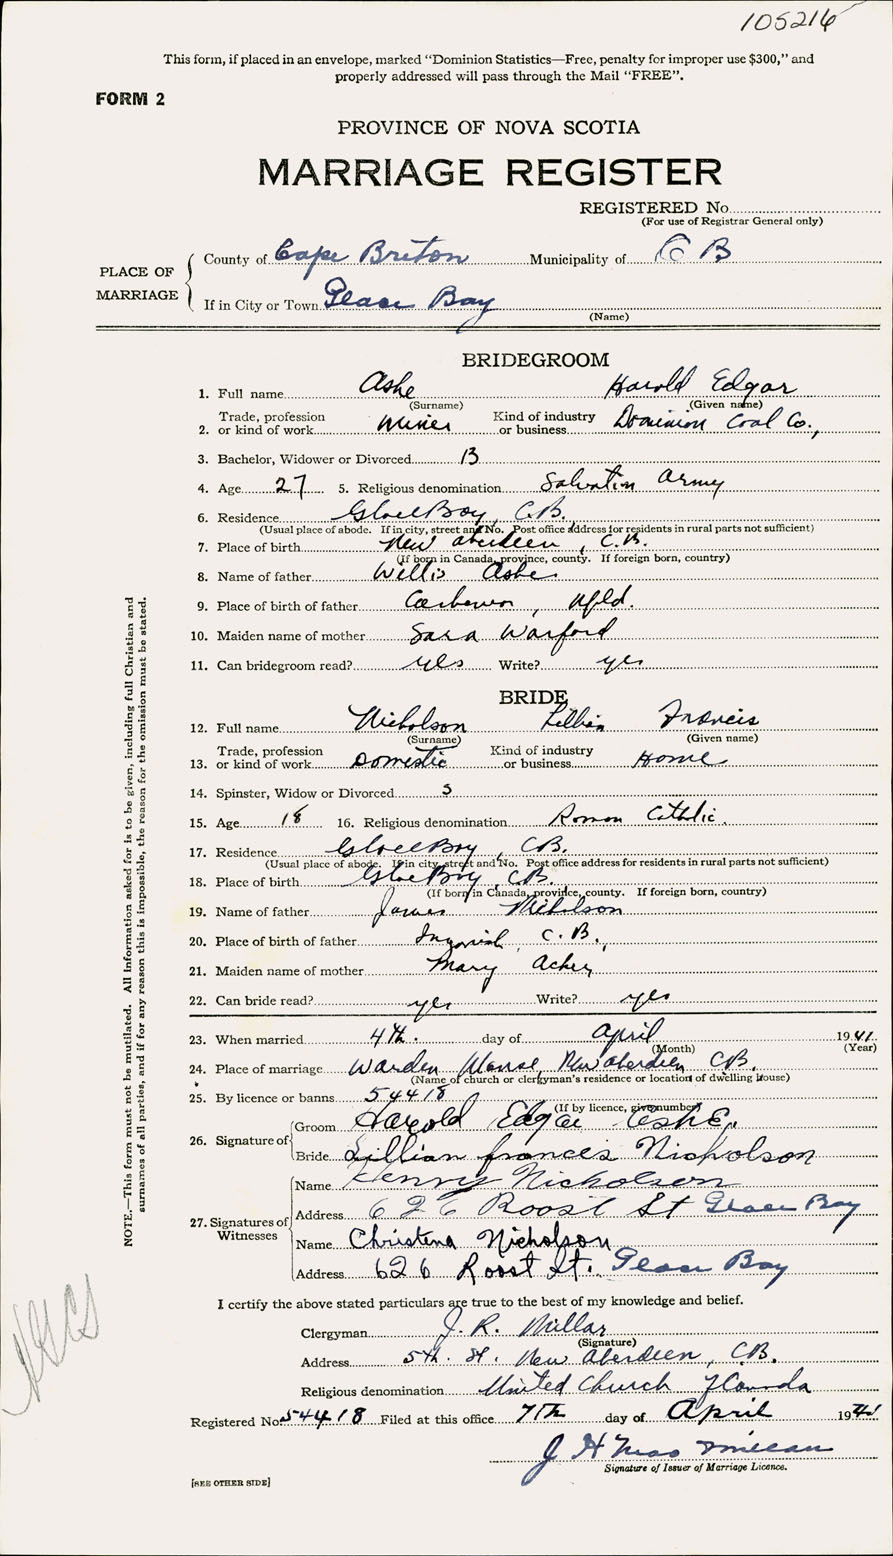 105216
This form, if placed in an envelope, marked “Dominion Statistics—Free, penalty for improper use $300,” and
properly addressed will pass through the Mail “FREE”.
FORM 2
PROVINCE OF NOVA SCOTIA
MARRIAGE REGISTER
REGISTERED No.
(For use of Registrar General only)
PLACE OF MARRIAGE
County of Cape Breton Municipality of C B
If in City or Town Glace Bay
(Name)
BRIDEGROOM
1. Full name Ashe Harold Edgar
(Surname) (Given name)
2. Trade, profession or kind of work Miner Kind of industry or business Dominion Coal Co.,
3. Bachelor, Widower or Divorced B
4. Age 27 5. Religious denomination Salvation Army
6. Residence Glace Bay, C.B.
(Usual place of abode. If in city, street and No. Post office address for residents in rural parts not sufficient)
7. Place of birth New Aberdeen, C.B.
(If born in Canada, province, county. If foreign born, country)
8. Name of father Willis Ashe
9. Place of birth of father Carbonear, Nfld.
10. Maiden name of mother Sara Warford
11. Can bridegroom read? yes Write? yes
BRIDE
12. Full name Nicholson Lillian Francis
(Surname) (Given name)
13. Trade, profession or kind of work Domestic Kind of industry or business Home
14. Spinster, Widow or Divorced S
15. Age 18 16. Religious denomination Roman Catholic.
17. Residence Glace Bay, C.B.
(Usual place of abode. If in city, street and No. Post office address for residents in rural parts not sufficient)
18. Place of birth Glace Bay, C.B.
(If born in Canada, province, county. If foreign born, country)
19. Name of father James Nicholson
20. Place of birth of father Ingonish, C.B.,
21. Maiden name of mother Mary
22. Can bride read? yes Write? yes
23. When married 4th. day of April 1941
(Month) (Year)
24. Place of marriage Warden Manse, New Aberdeen C.B.
(Name of church or clergyman's residence or location of dwelling house)
25. By licence or banns 54418
(If by licence, give number)
26. Signature of
Groom Harold Edgar Ashe.
Bride Lillian frances Nicholson
27. Signatures of Witnesses
Name Henry Nicholson
Address 626 Roost St Glace Bay
Name Christena Nicholson
Address 626 Roost St. Glace Bay
I certify the above stated particulars are true to the best of my knowledge and belief.
Clergyman J. R. Millar
(Signature)
Address 5th. St. New Aberdeen, C.B.
Religious denomination United Church of Canada
Registered No. 54418 Filed at this office 7th day of April 1941
J H MacMillan
Signature of Issuer of Marriage Licence.
[SEE OTHER SIDE]
NOTE.—This form must not be mutilated. All Information asked for is to be given, including full Christian and
surnames of all parties, and if for any reason this is impossible, the reason for the omission must be stated.